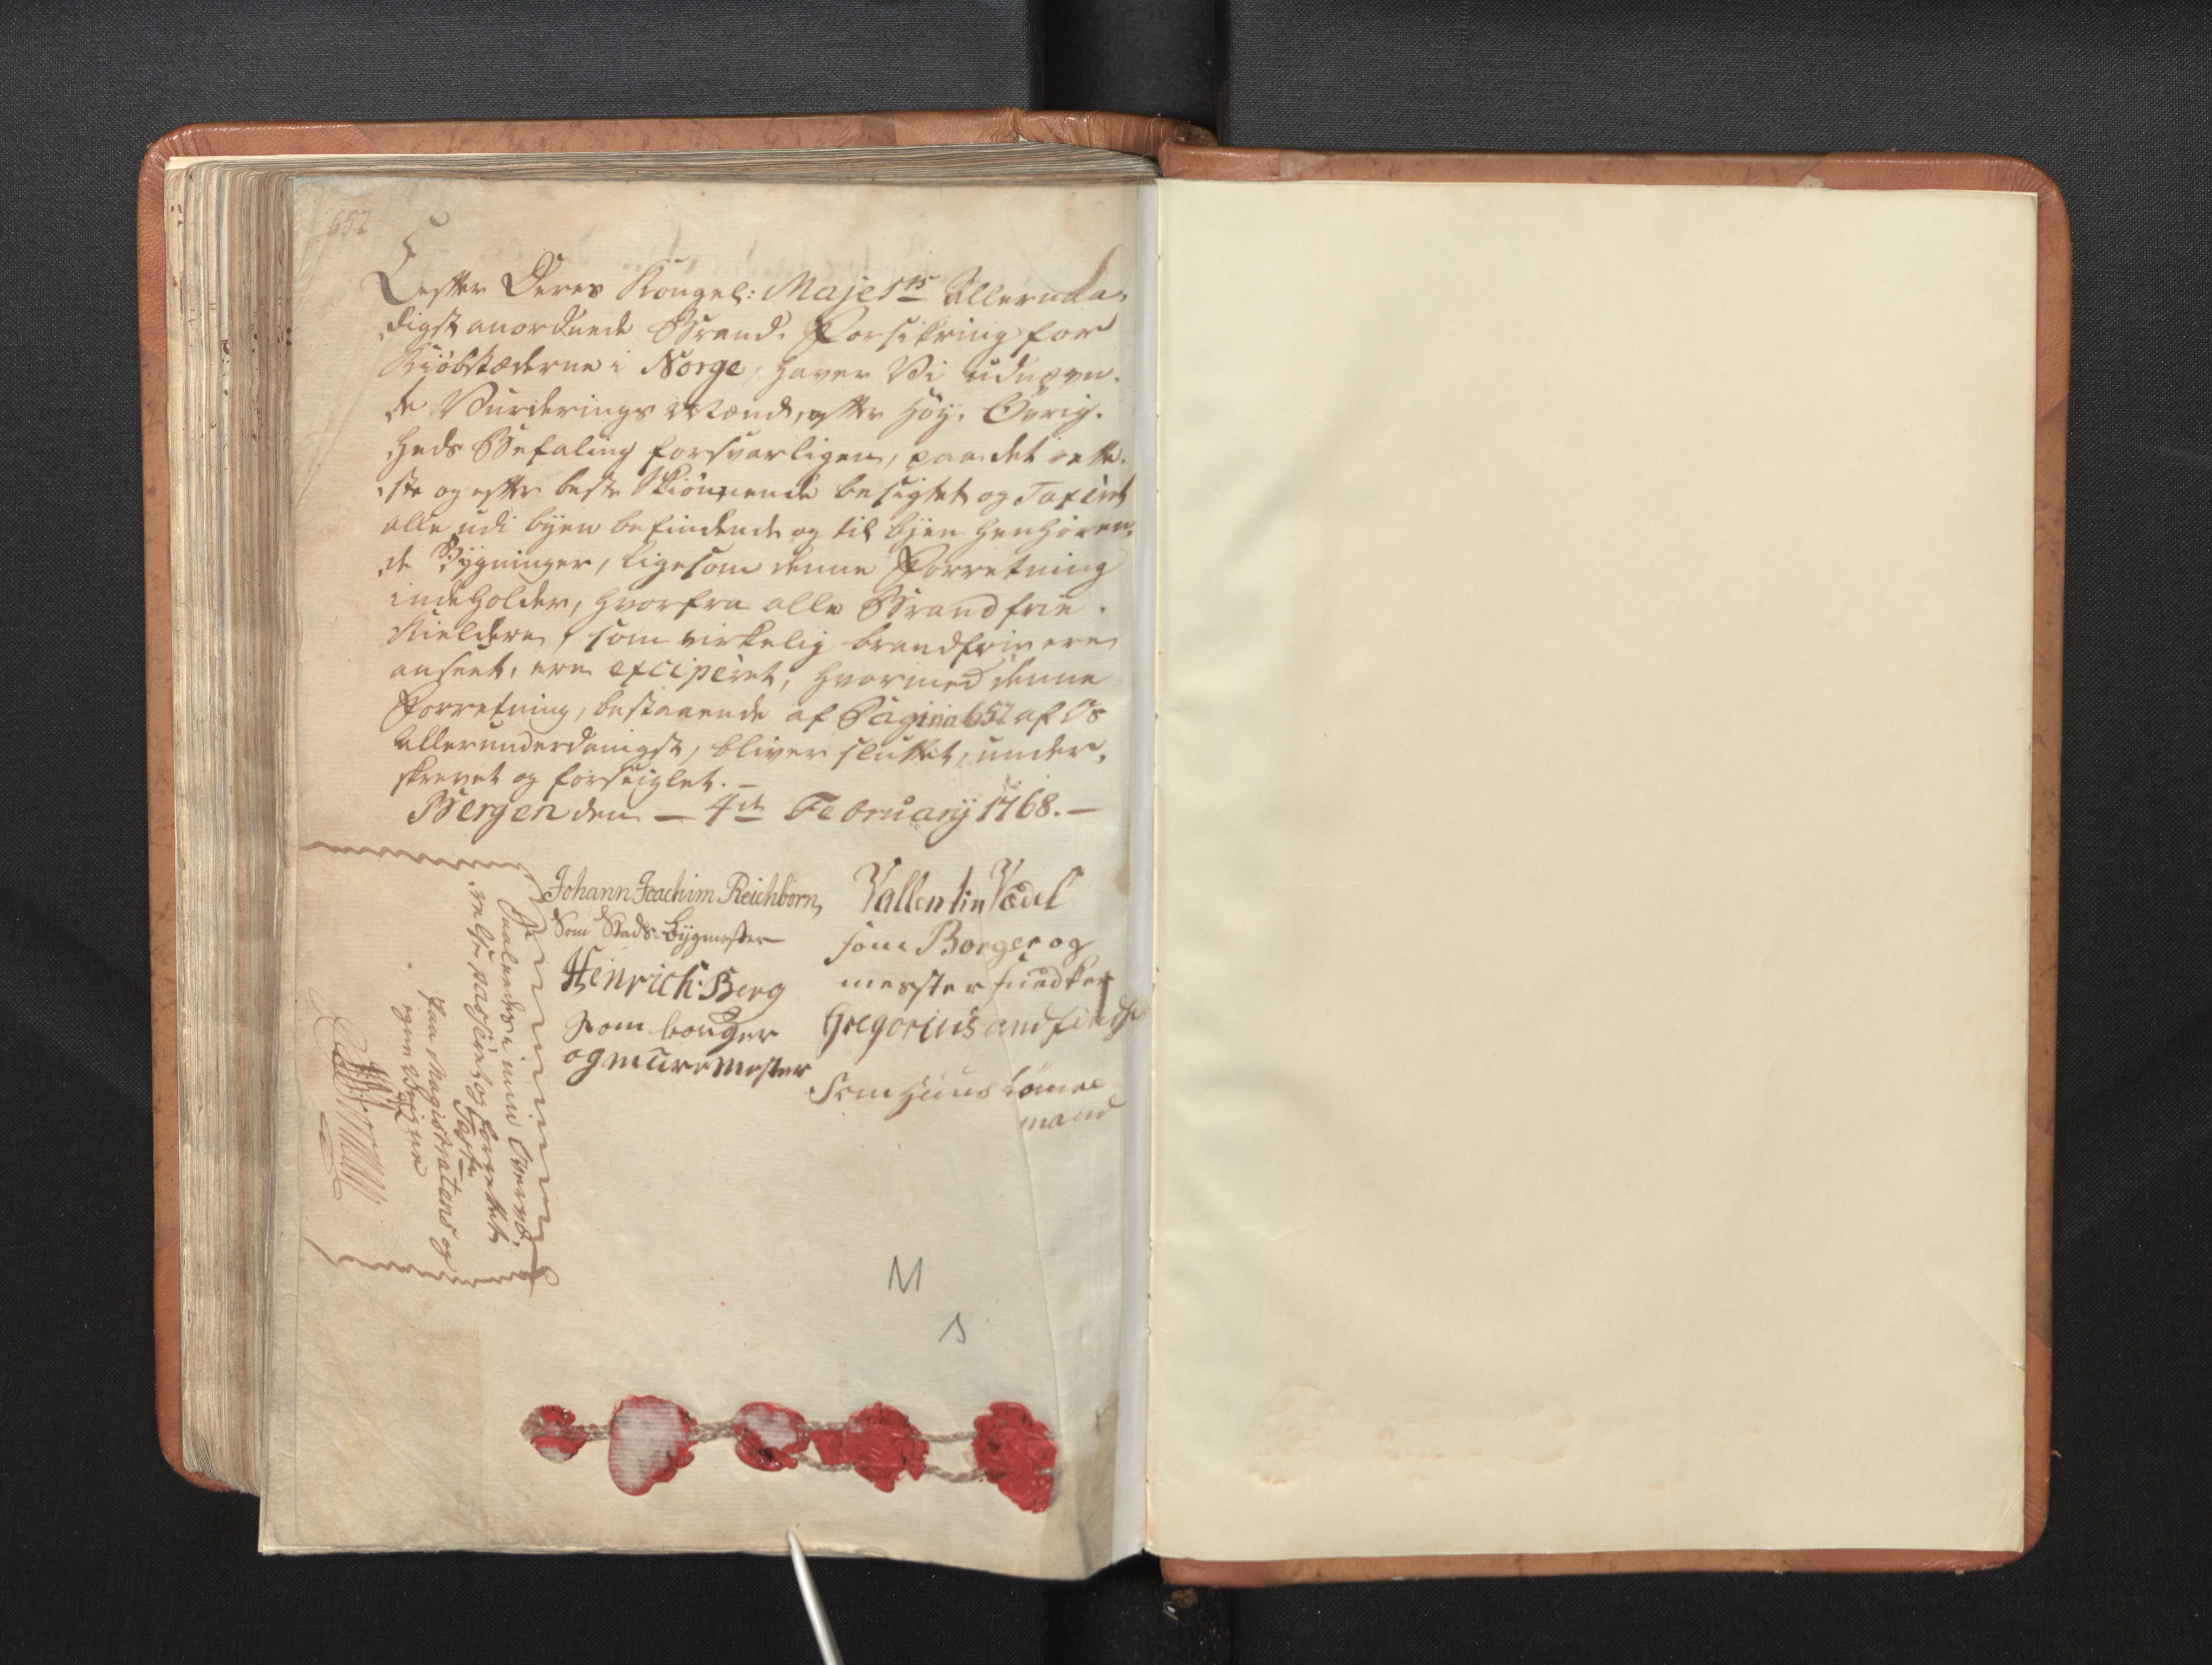 652
Eefter Deres Kongel: Majesᵗˢ Allernaa-
digst anordnede Brand-Forsikring for
Kiöbstæderne i Norge, haver Vi udnævn-
de Vurderings Mænd, efter Höy-Övrig-
heds Befaling forsvarligen, paa det rette-
ste og efter beste Skiönnende besigtet og Taxeret
alle udi byen befindende og til byen henhören-
de Bygninger, ligesom denne Forretning
indeholder, hvorfra alle Brandfrie
Kieldere, som virkelig brandfrie ere
anseet, ere exciperet, hvormed denne
Forretning, bestaaende af Pagina 652 af Os
allerunderdanigst, bliver sluttet, under-
skrevet og forseiglet. —
Bergen den — 4de February 1768. —
Johann Joachim Reichborn,
Som Stads-Bygmester
Henrich: Berg
som borger
og mure mester
Vallentin Vedel
som Borger og
mester snedker
Gregorius
Som Huus tömer
mand
Saaledes i min Overvæ-
relse passeret og forrettet,
Testr
paa Magistratens og
egne Vegne
M
S